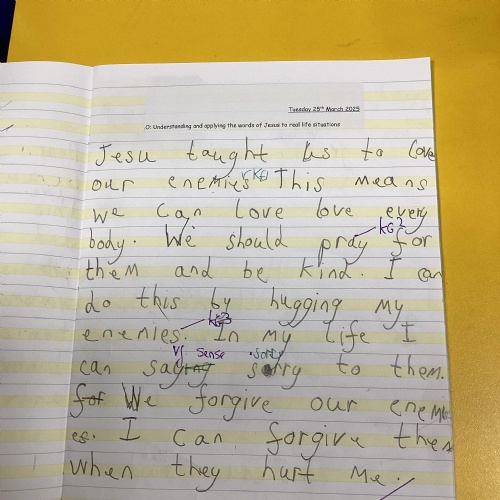 Tuesday 25th March 2025
.O: Understanding and applying the words of Jesus to real life situations
Jesu taught us to love
our enemies This means
we can love love every
body. We should pray for
them and be kind. I can
do this by hugging my
enemies. In my life I
can saying sorry to them.
for We forgive our enemi
es. I can forgive them
when they hurt me.
KG2
sense
sorry